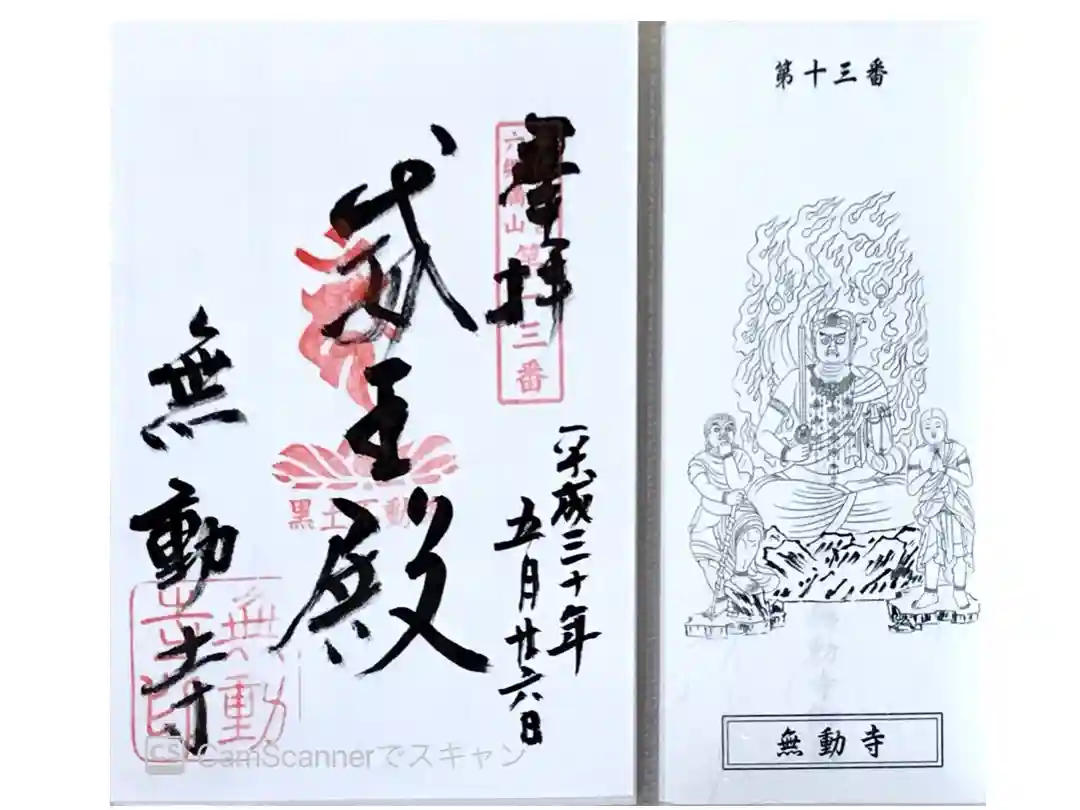 奉拝
六郷満山
第十三番
平成三十年
五月廿六日
殿
黒土不動
無動寺
無動
寺印
CS CamScannerでスキャン
第十三番
無動寺